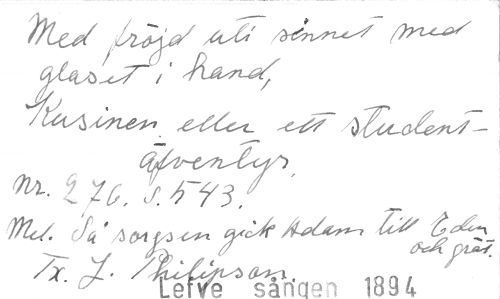 Med fröjd uti sinnet med
glaset i hand,
Kusinen eller ett student-
äfventyr.
Nr. 276. s. 543.
Mel. Så sorgsen gick Adam till Eden
och grät.
Tx. J. Philipson.
Lefve sången 1894